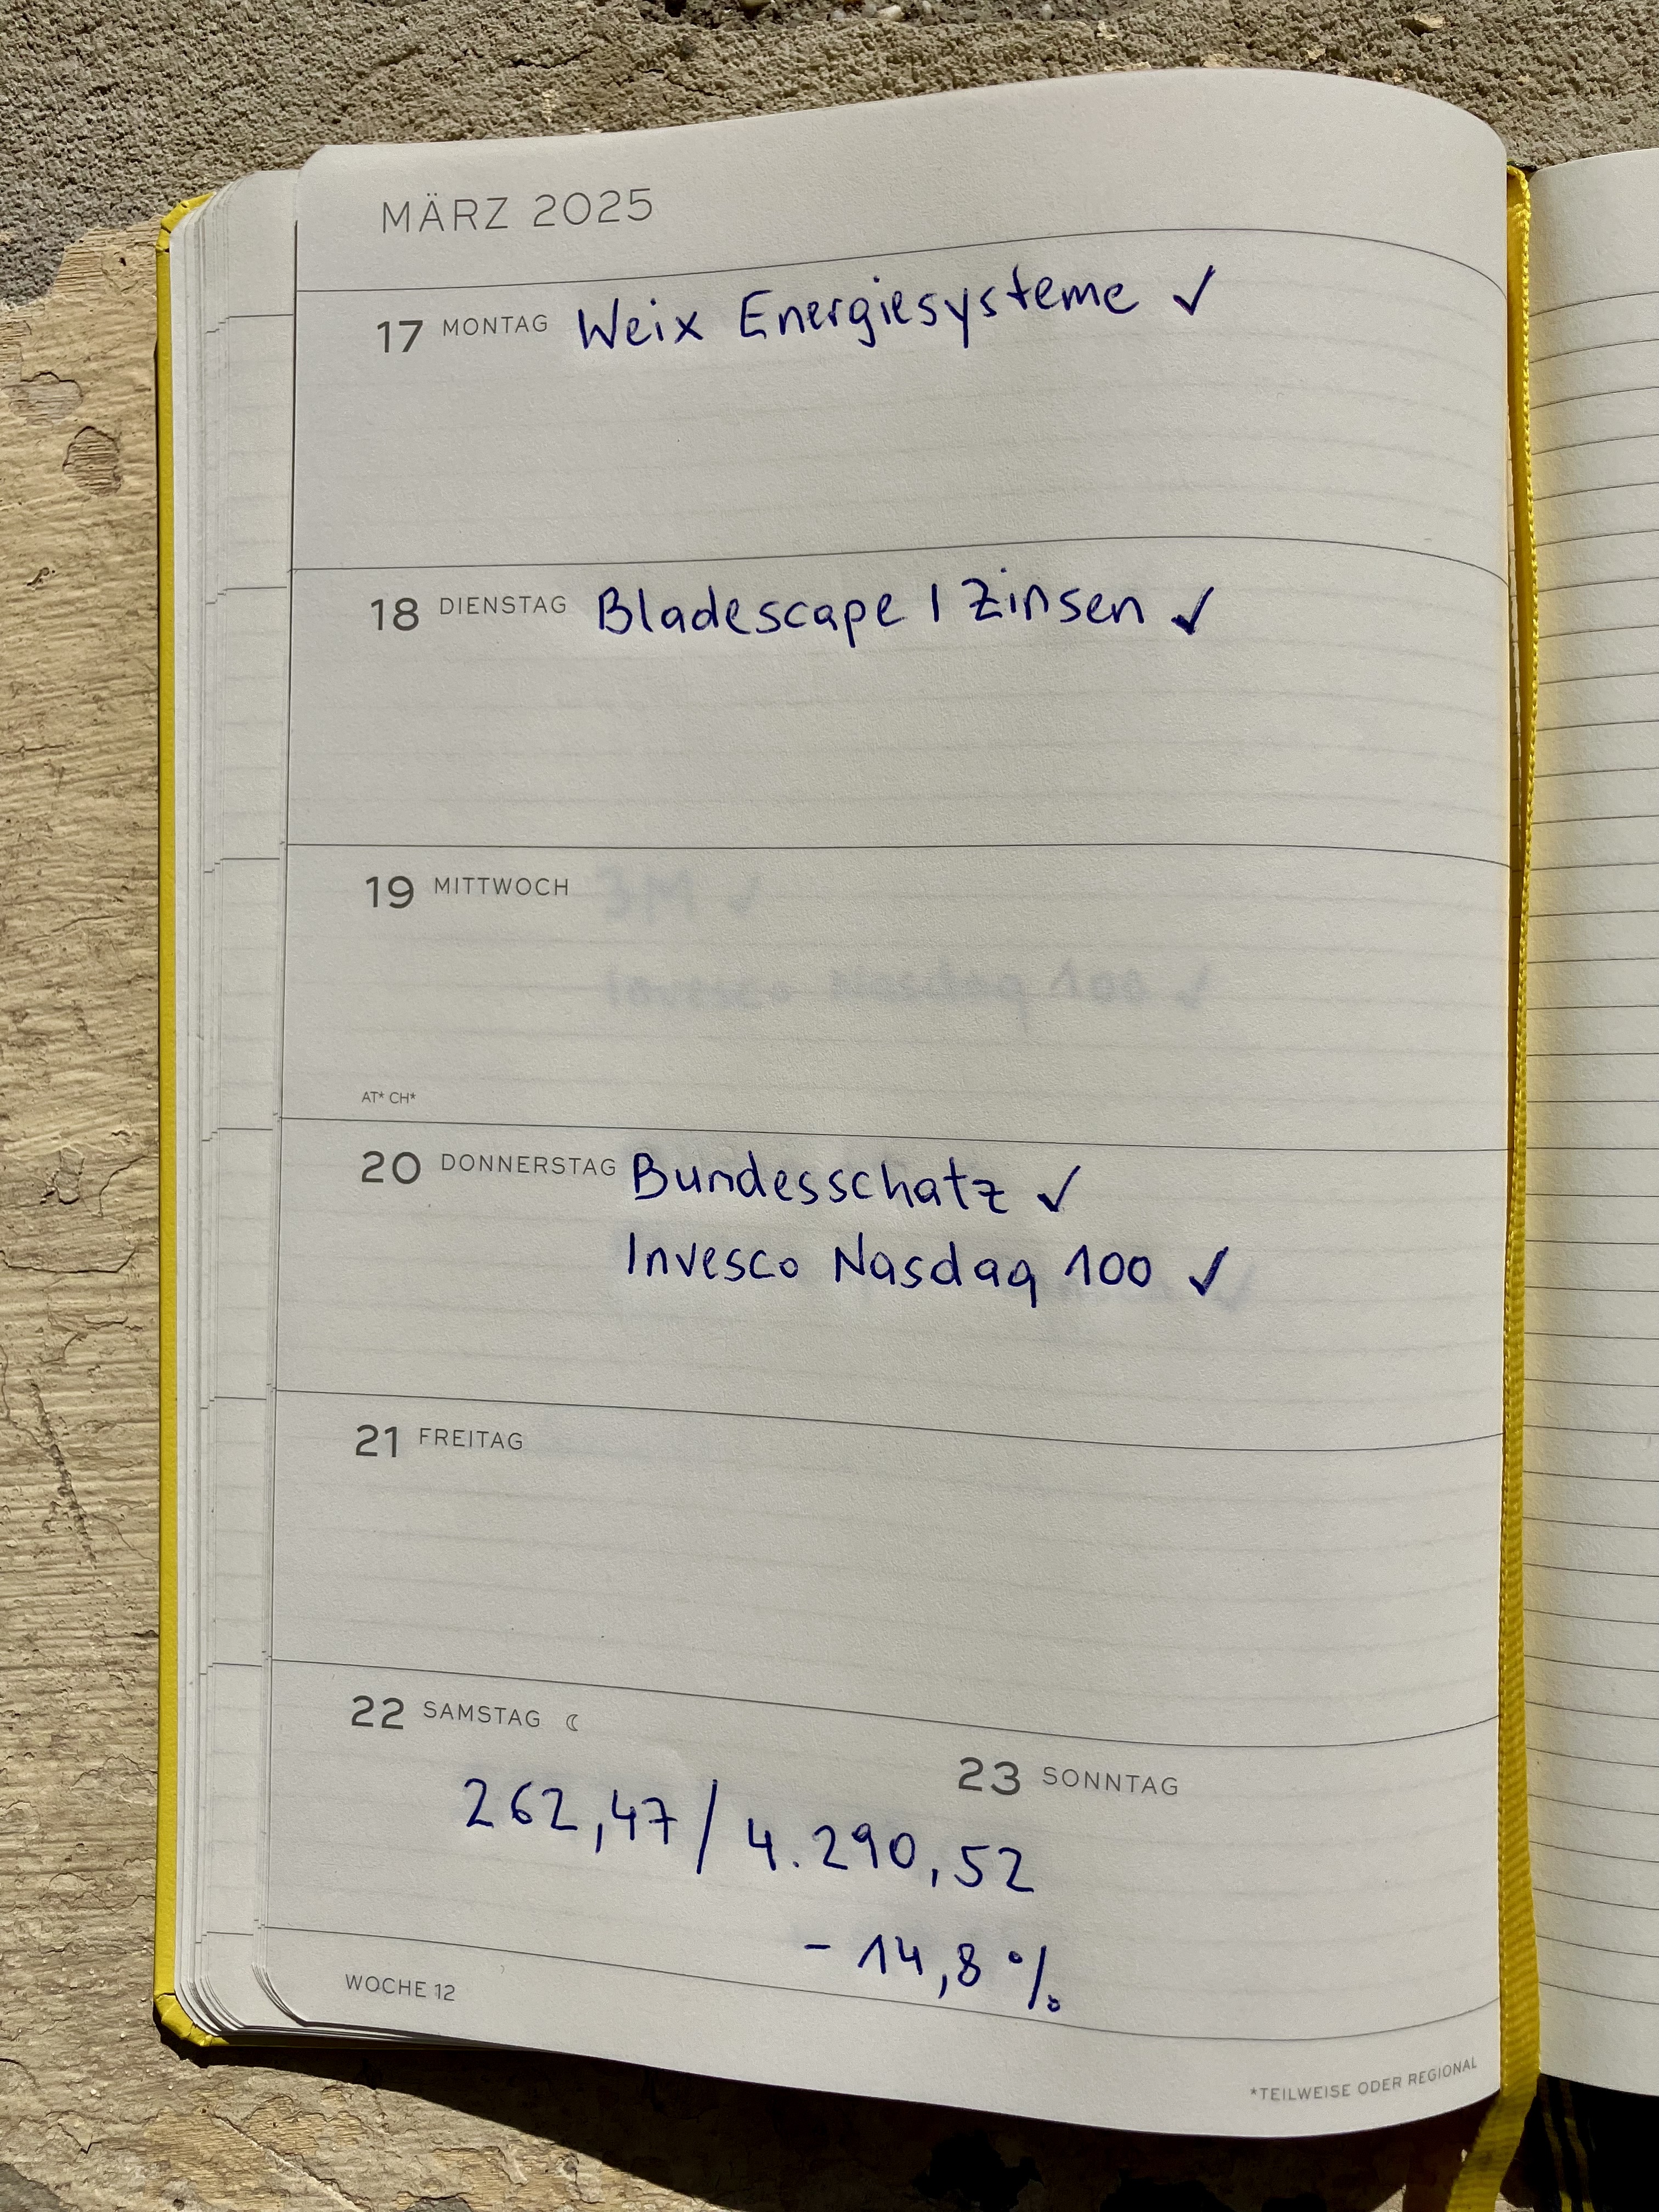 MÄRZ 2025
17 MONTAG Weix Energiesysteme ✓
18 DIENSTAG Bladescape | Zinsen ✓
19 MITTWOCH 3M ✓
Invesco Nasdaq 100 ✓
AT* CH*
20 DONNERSTAG Bundesschatz ✓
Invesco Nasdaq 100 ✓
21 FREITAG
22 SAMSTAG ☾
23 SONNTAG
262,47 / 4.290,52
- 14,8 %
WOCHE 12
*TEILWEISE ODER REGIONAL